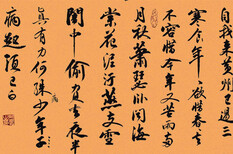 自我来黄州已過三
寒食年〻欲惜春〻去
不容惜今年又苦雨兩
月秋蕭瑟卧聞海
棠花泥汙燕支雪
闇中偷負去夜半
真有力何殊少年子
病起頭已白